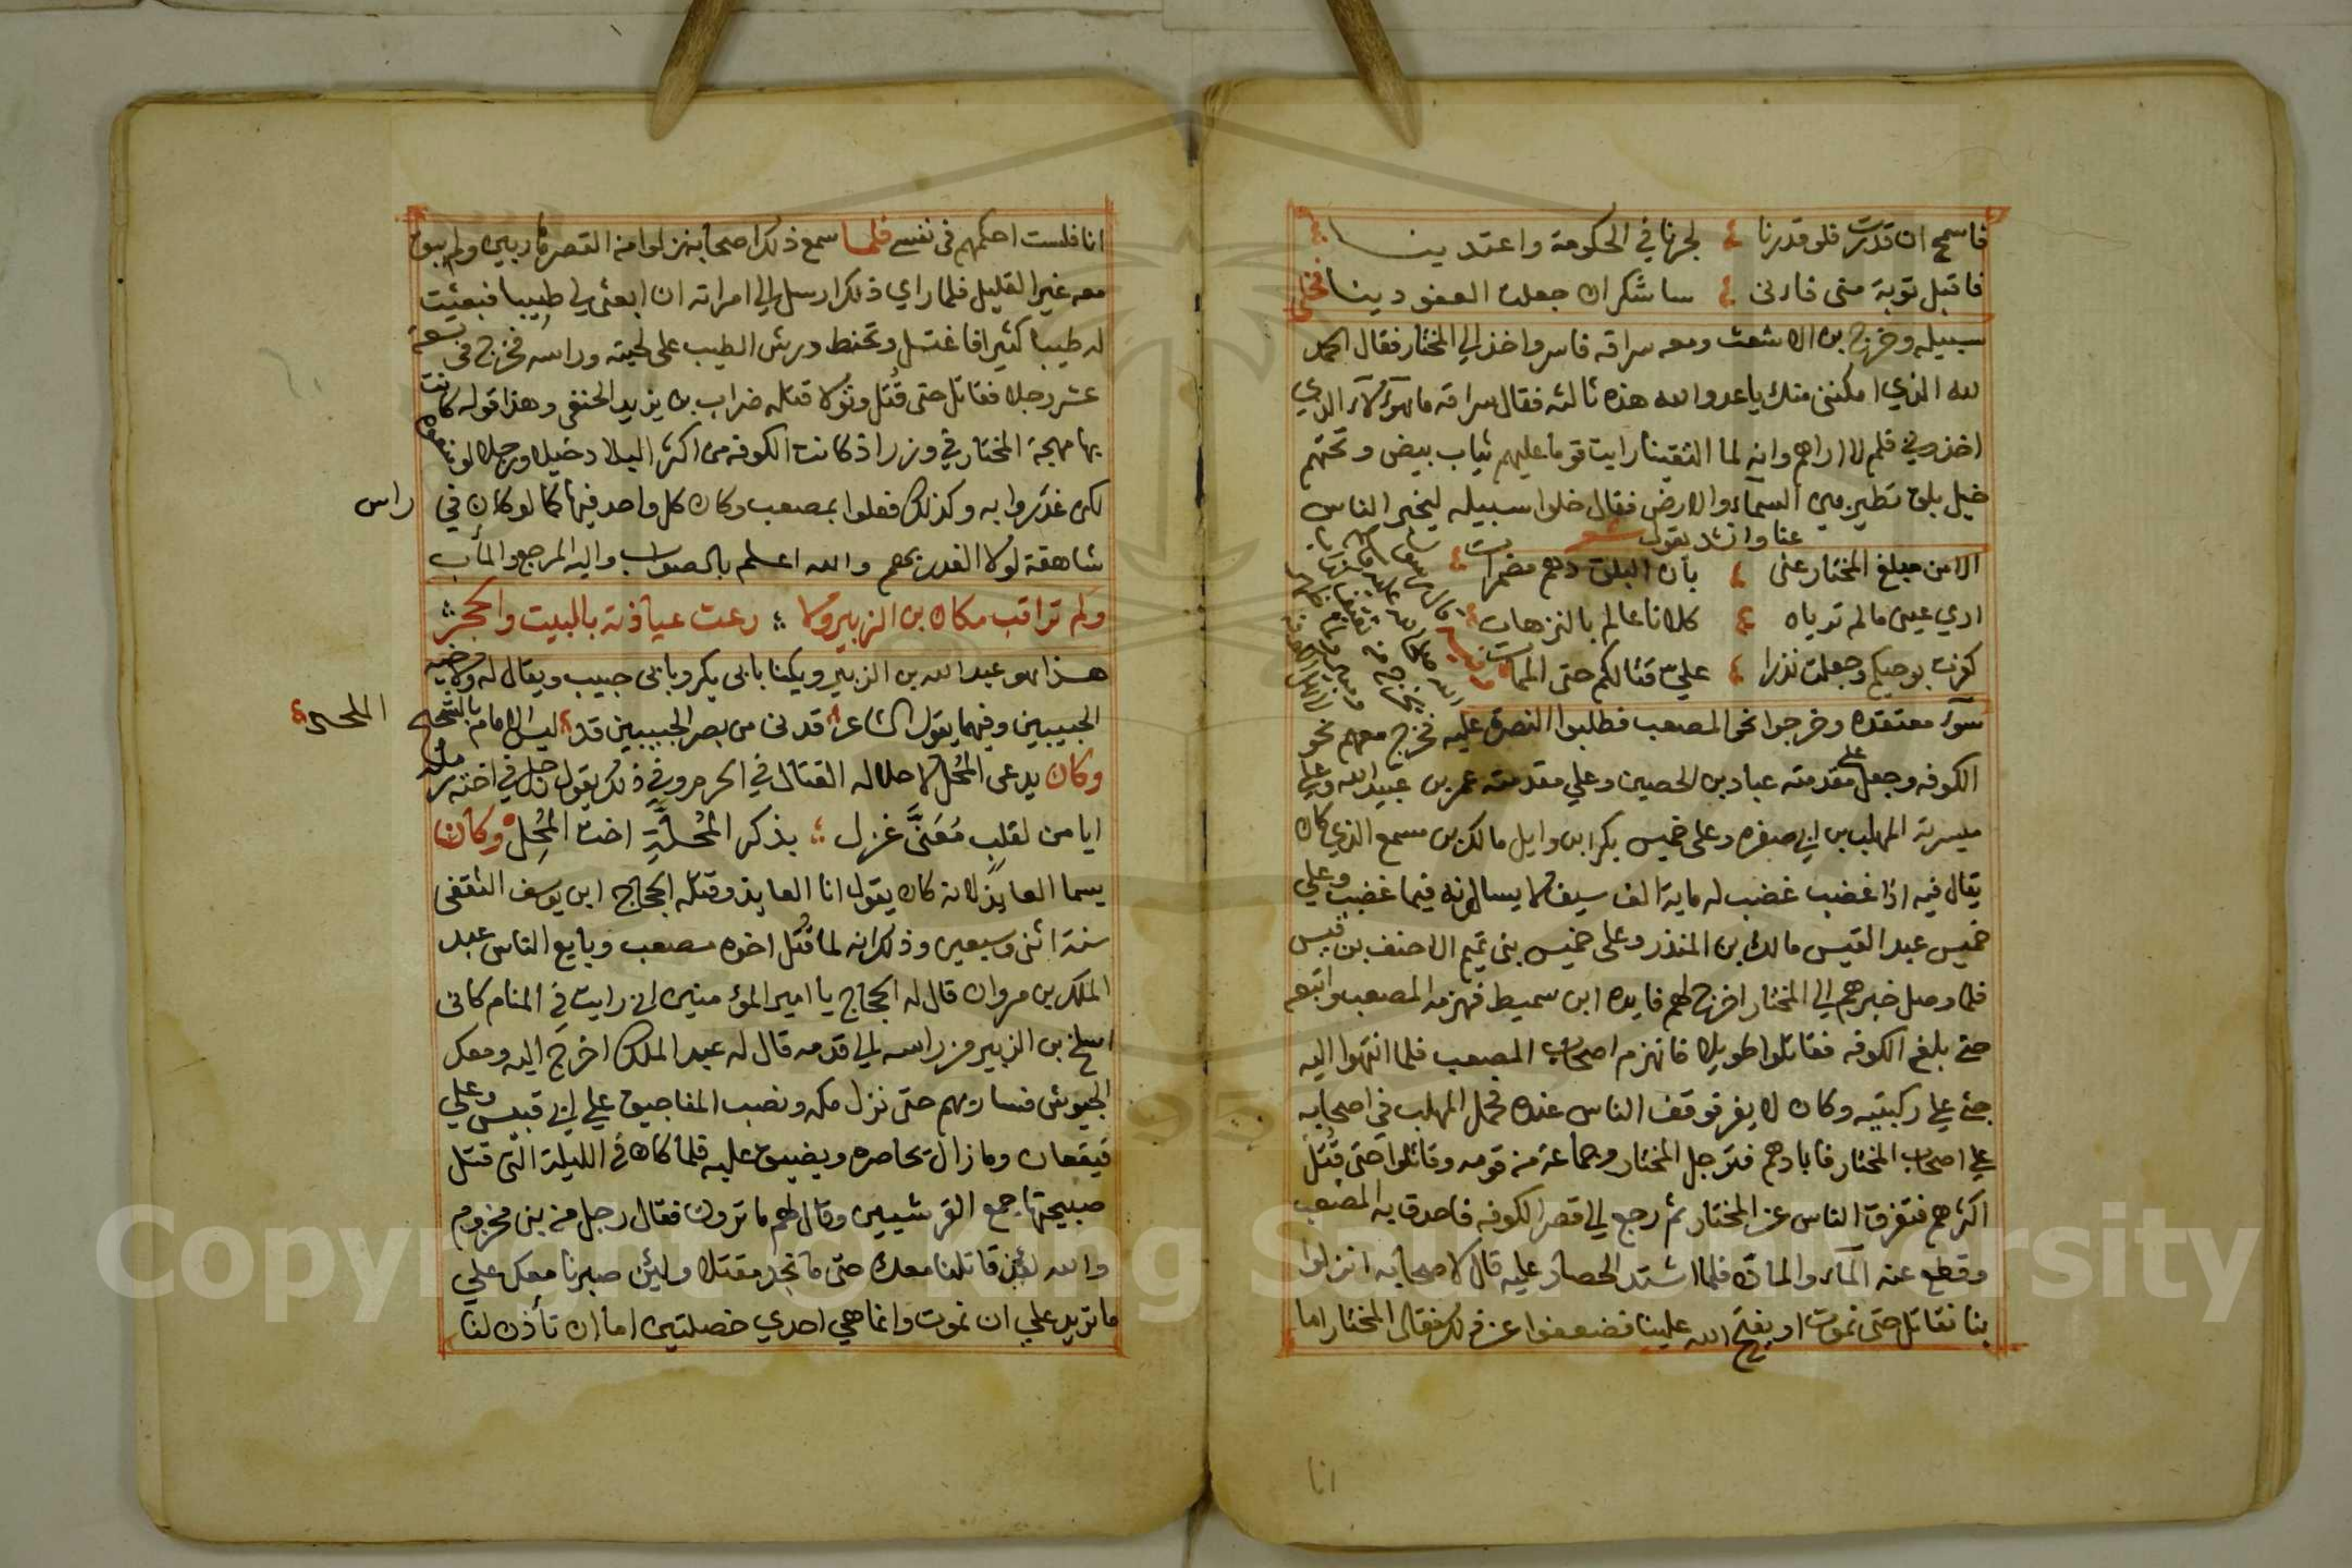 فاسمح ان قدرت فلو قدرنا لجرنا في الحكومة واعتدينا
فاقبل توبة منى فانى ساشكر ان جعلت العفو دينا فخلى
سبيله وخرج بن الاشعث ومعه سراقه فاسر واخذ الي المختار فقال الحمد
لله الذي امكننى منك ياعدو الله هذه ثالثه فقال سراقه ما هؤلاء الذي
اخذوني فلم لا اراهم وانه لما التقينا رايت قوما عليهم ثياب بيض وتحتهم
خيل بلق تطير بين السمآء والارض فقال خلوا سبيله ليخبر الناس
عنا وانشد يقول شعر
الا من مبلغ المختار عنى بأن البلق دهم مضمرات
اري عينى مالم ترياه كلانا عالم بالترهات
كفرت بوحيكم وجعلت نذرا علي قتالكم حتى الممات
سوء معتقده وخرجوا نحو المصعب فطلبوا النصرة عليه فخرج معهم نحو
الكوفه وجعل على مقدمته عباد بن الحصين وعلي مقدمته عمر بن عبيد الله وعلي
ميسرته المهلب بن ابي صفره وعلى خميس بكر ابن وايل مالك بن مسمع الذي كان
يقال فيه اذا غضب غضب له ماية الف سيف لا يسالونه فيما غضب وعلي
خميس عبد القيس مالك بن المنذر وعلى خميس بنى تميم الاحنف بن قيس
فلما وصل خبرهم الي المختار اخرج لهم قايده ابن سميط فهزمه المصعب واتبعه
حتى بلغ الكوفه فقاتلوا طويلا فانهزم اصحاب المصعب فلما انتهوا اليه
جثى علي ركبتيه وكان لا يفر فوقف الناس عنده فحمل المهلب في اصحابه
علي اصحاب المختار فابادهم فترجل المختار وجماعة من قومه وقاتلوا حتى قُتل
اكثرهم فتفرق الناس عن المختار ثم رجع الي قصر الكوفه فاحدق به المصعب
وقطع عنه المآء والمادة فلما اشتد الحصار عليه قال لاصحابه انزلوا
بنا نقاتل حتى نموت او يفتح الله علينا فضعفوا عن ذلك فقال المختار اما
انا
انا فلست احكمهم في نفسى فلما سمع ذلك اصحابه نزلوا من القصر هاربين ولم يبق
معه غير القليل فلما راي ذلك ارسل الي امراته ان ابعثى لي طيبا فبعثت
له طيبا كثيرا فاغتسل وتحنط ورش الطيب على لحيته وراسه فخرج فى تسعة
عشر رجلا فقاتل حتى قُتل وتولا قتله ضراب بن يزيد الحنفى وهذا قوله كانت
بها مهجة المختار في وزر اذ كانت الكوفه من اكثر البلاد خيلا ورجلا لو
لكن غدروا به وكذلك فعلوا بمصعب وكان كل واحد فيها كما لو كان في راس
شاهقة لولا الغدر بهم والله اعلم بالصواب واليه المرجع والمأب
ولم تراقب مكان بن الزبير ولا رعت عياذته بالبيت والحجر
هذا هو عبد الله بن الزبير ويكنا بابى بكر وبابى خبيب ويقال له ولاخيه
الخبيبين وفيهما يقول الشاعر قدنى من نصر الخبيبين قد ليس الامام بالشحيح الملحد
وكان يدعى المُحل لاحلاله القتال في الحرم وفي ذلك يقول رجل في اخته رمله
ايا من لقلبٍ مُعَنَّى غزل بذكر المُحلَّةِ اخت المُحِل وكان
يسما العايذ لانه كان يقول انا العايذ وقتله الحجاج ابن يوسف الثقفى
سنة اثنى وسبعين وذلك انه لما قُتل اخوه مصعب وبايع الناس عبد
الملك بن مروان قال له الحجاج يا امير المؤمنين اني رايت في المنام كانى
اسلخ بن الزبير من راسه الي قدمه قال له عبد الملك اخرج اليه ومعك
الجيوش فسار بهم حتى نزل مكه ونصب المناجيق علي ابي قبيس وعلي
قيقعان وما زال يحاصره ويضيق عليه فلما كان في الليلة التى قتل
صبيحتها جمع القرشيين وقال لهم ما ترون فقال رجل من بنى مخزوم
والله لقد قاتلنا معك حتى ما نجد مقتلا ولئن صبرنا معك علي
ما تزيد علي ان نموت وانما هي احدي خصلتين اما ان تأذن لنا
Copyright © King Saud University